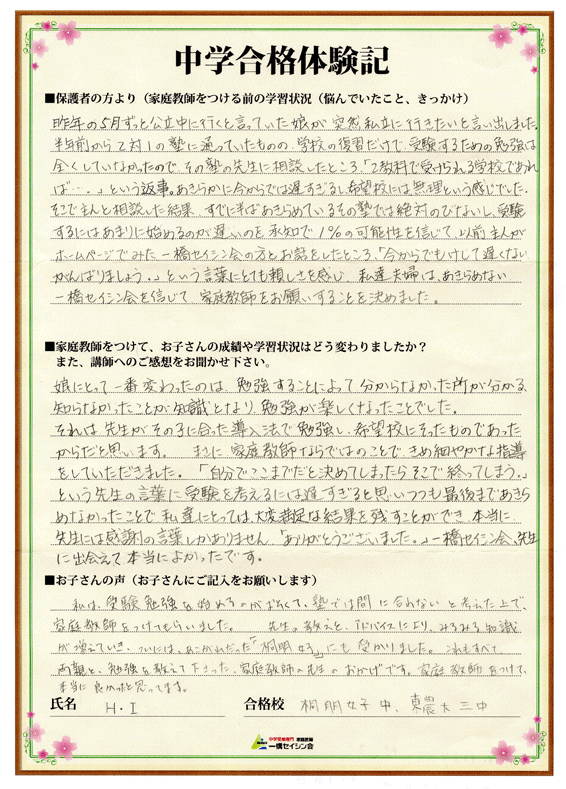 中学合格体験記
■保護者の方より（家庭教師をつける前の学習状況（悩んでいたこと、きっかけ）
昨年の5月ずっと公立中に行くと言っていた娘が突然私立に行きたいと言い出しました。
半年前から2対1の塾に通っていたものの、学校の復習だけで、受験するための勉強は
全くしていなかったので、その塾の先生に相談したところ、「2教科で受けられる学校であれ
ば…。」という返事。あきらかに今からでは遅すぎるし、希望校には無理という感じでした。
そこで主人と相談した結果、すでに半ばあきらめているその塾では絶対のびないし、受験
するにはあまりに始めるのが遅いのを承知で1%の可能性を信じて、以前主人が
ホームページでみた一橋セイシン会の方とお話をしたところ、「今からでもけして遅くない
がんばりましょう。」という言葉にとても頼しさを感じ、私達夫婦は、あきらめない
一橋セイシン会を信じて、家庭教師をお願いすることを決めました。
■家庭教師をつけて、お子さんの成績や学習状況はどう変わりましたか？
また、講師へのご感想をお聞かせ下さい。
娘にとって一番変わったのは、勉強することによって分からなかった所が分かる、
知らなかったことが知識となり、勉強が楽しくなったことでした。
それは先生がその子に合った導入法で勉強し、希望校にそったものであった
からだと思います。 まさに家庭教師ならではのことで、きめ細やかな指導
をしていただきました。「自分でここまでだと決めてしまったらそこで終ってしまう。」
という先生の言葉に受験を考えるには遅すぎると思いつつも最後まであきら
めなかったことで私達にとっては、大変満足な結果を残すことができ、本当に
先生には感謝の言葉しかありません。「ありがとうございました。」一橋セイシン会、先生
に出会えて本当によかったです。
■お子さんの声（お子さんにご記入をお願いします）
私は、受験勉強を始めるのがおそくて、塾では間に合わないと考えた上で、
家庭教師をつけてもらいました。 先生の教えと、アドバイスにより、みるみる知識
が増えていき、ついには、あこがれだった「桐朋女子」にも受かりました。これもすべて
両親と、勉強を教えて下さった、家庭教師の先生のおかげです。家庭教師をつけて、
本当に良かったと思ってます。
氏名 H・I 合格校 桐朋女子中、東農大三中
中学受験専門 家庭教師
一橋セイシン会